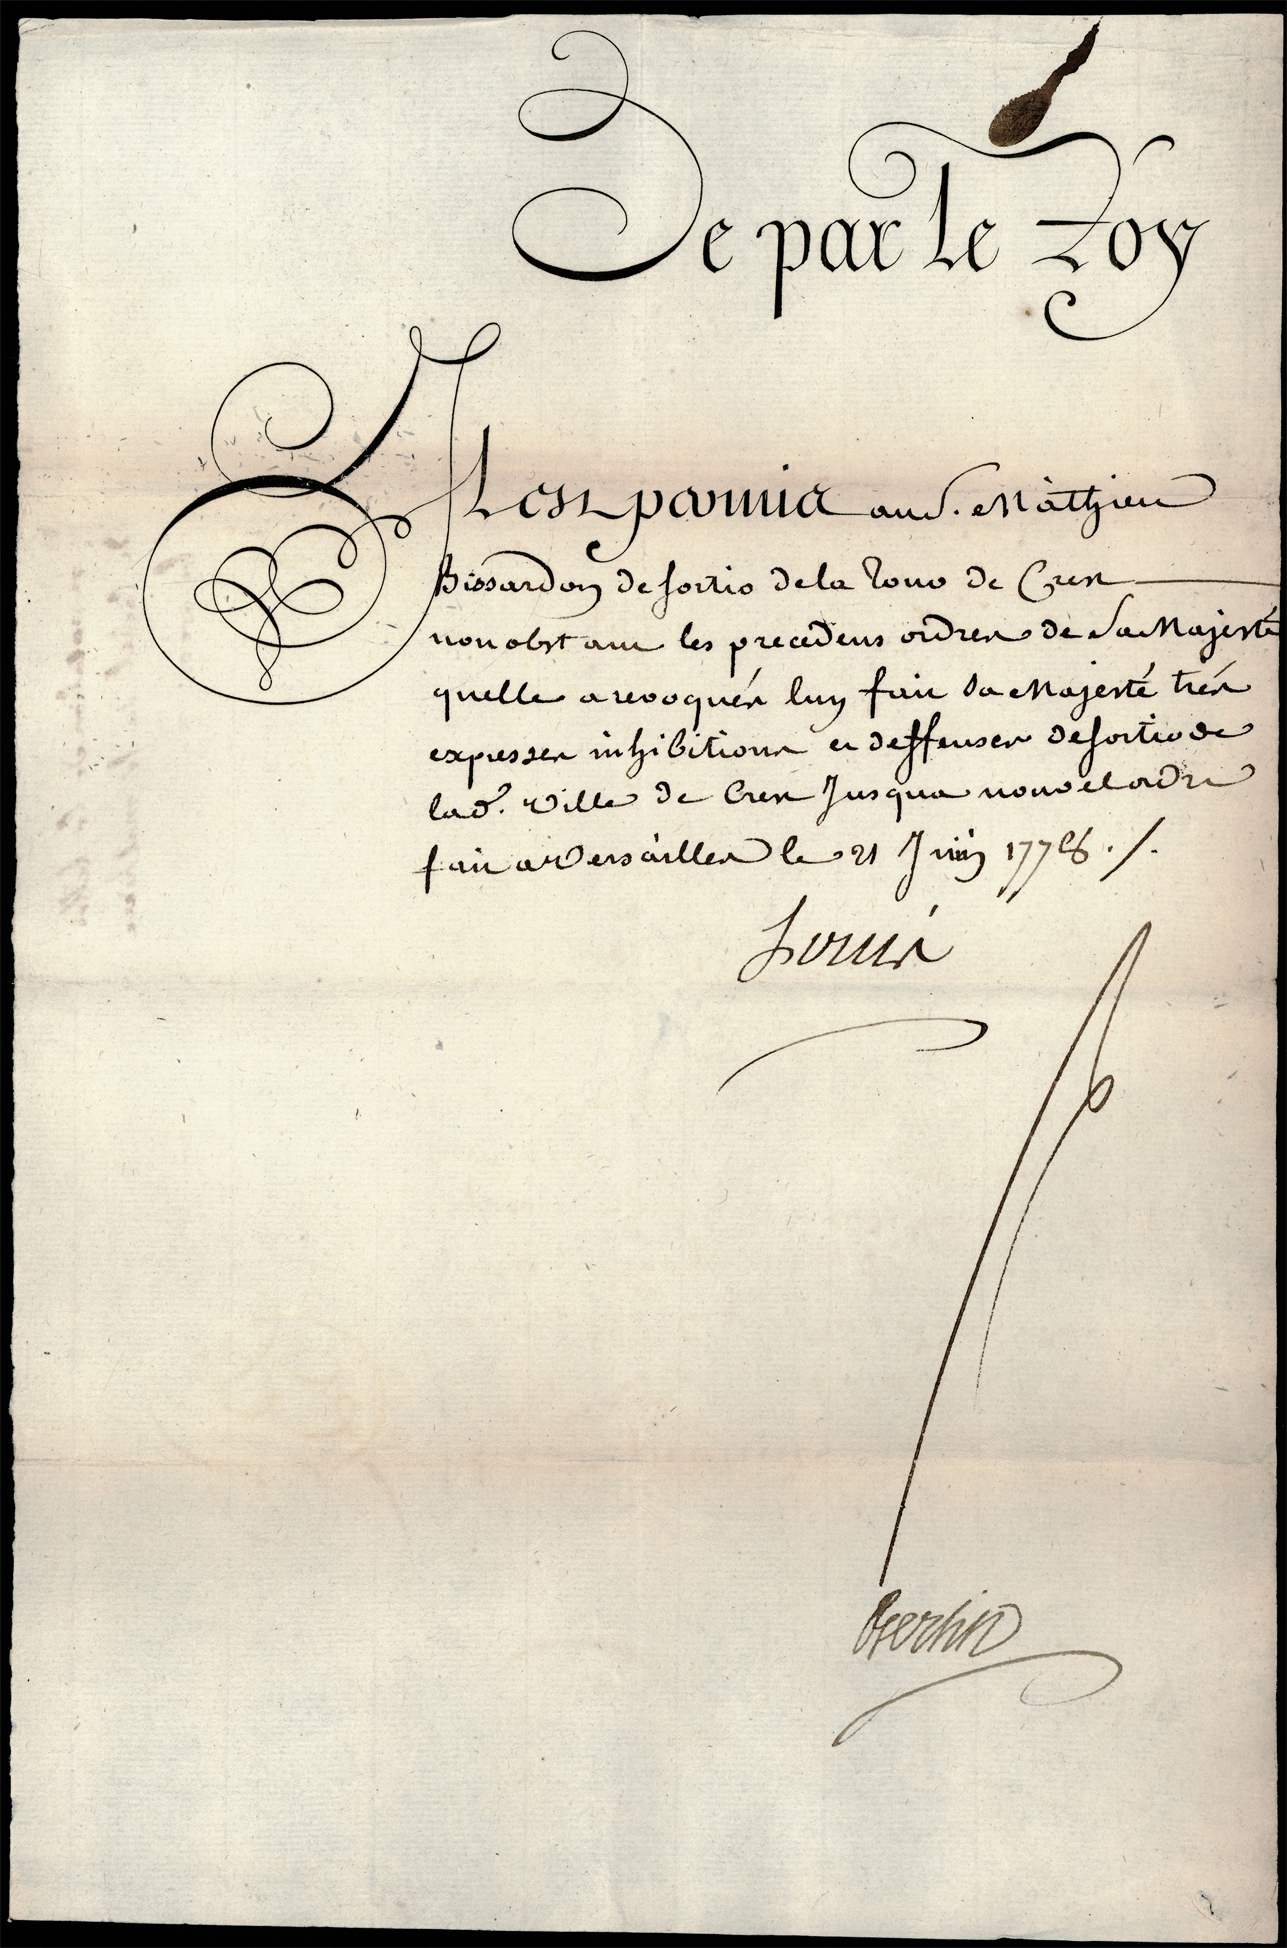 De par le Roy
Il est permis au S. Mathieu
Bissardon de sortir de la Tour de Crest
nonobstant les precedens ordres de Sa Majesté
quelle a revoqués luy fait Sa Majesté trés
expresses inhibitions et deffenses de sortir de
lad. Ville de Crest Jusqua nouvel ordre
fait a Versailles le 21 Juin ./.
Louis
Bertin